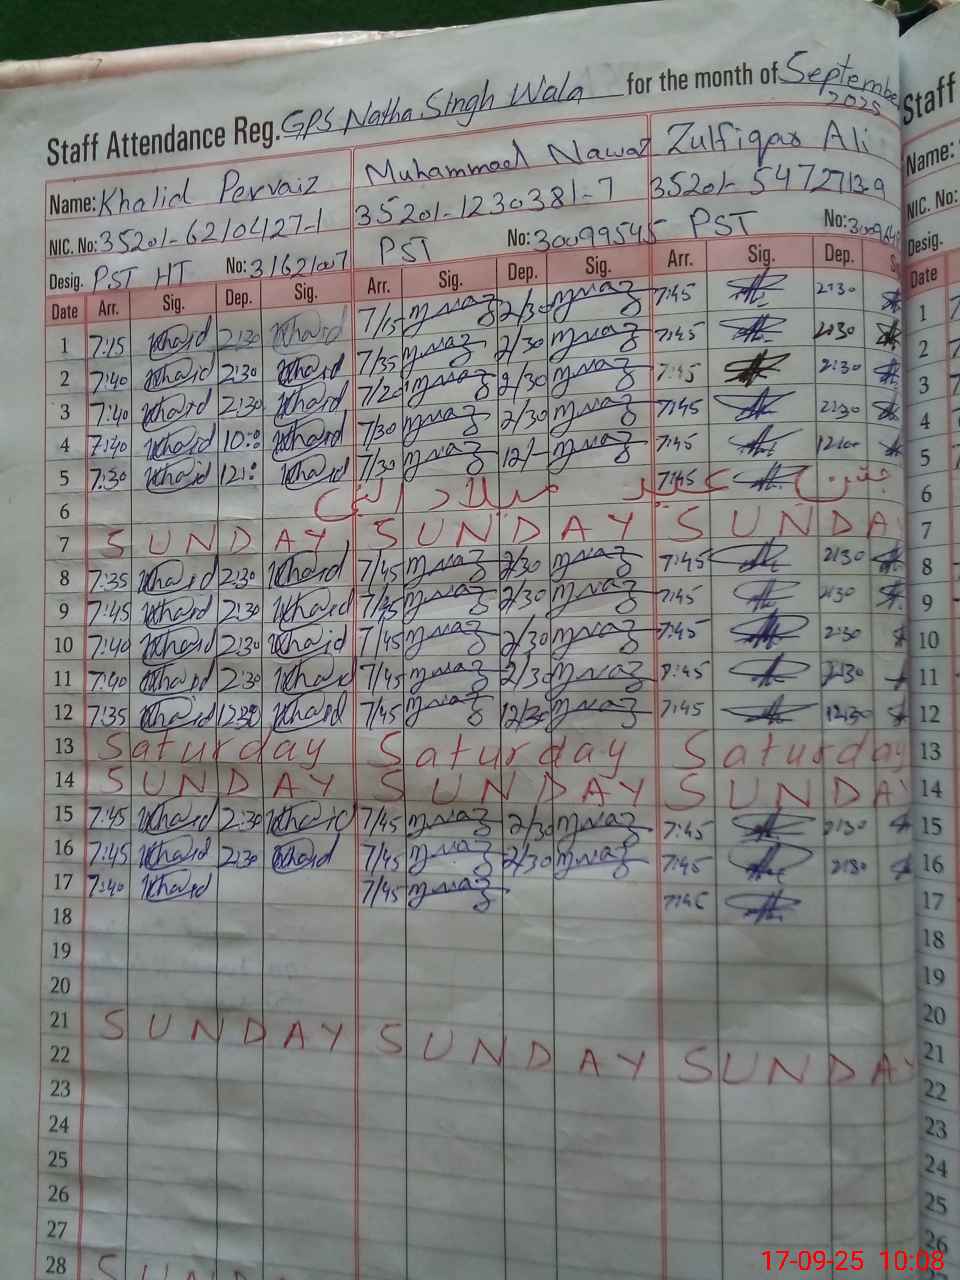 Staff Attendance Reg. GPS Natha Singh Wala for the month of September 2025
Name: Khalid Pervaiz Muhammad Nawaz Zulfiqar Ali
NIC. No: 35201-6210427-1 35201-1230381-7 35201-5472713-9
Desig. PST HT No: 31621007 PST No: 30099545 PST No:
Date Arr. Sig. Dep. Sig. Arr. Sig. Dep. Sig. Arr. Sig. Dep.
1 7:15 Khalid 2:30 Khalid 7/15 mnaz 2/30 mnaz 7:45 2:30 1
2 7:40 Khalid 2:30 Khalid 7/35 mnaz 2/30 mnaz 7:45 2:30 2
3 7:40 Khalid 2:30 Khalid 7/20 mnaz 2/30 mnaz 7:45 2:30 3
4 7:40 Khalid 10: Khalid 7/30 mnaz 2/30 mnaz 7:45 2:30 4
5 7:30 Khalid 12: Khalid 7/30 mnaz 12/- mnaz 7:45 12:00 5
6 جشن عید میلاد النبی 7:45 6
7 SUNDAY SUNDAY SUNDA 7
8 7:35 Khalid 2:30 Khalid 7/45 mnaz 2/30 mnaz 7:45 2:30 8
9 7:45 Khalid 2:30 Khalid 7/35 mnaz 2/30 mnaz 7:45 2:30 9
10 7:40 Khalid 2:30 Khalid 7/45 mnaz 2/30 mnaz 7:45 2:30 10
11 7:40 Khalid 2:30 Khalid 7/45 mnaz 2/30 mnaz 8:45 2:30 11
12 7:35 Khalid 12:30 Khalid 7/45 mnaz 12/30 mnaz 7:45 12:30 12
13 Saturday Saturday Saturday 13
14 SUNDAY SUNDAY SUNDA 14
15 7:45 Khalid 2:30 Khalid 7/45 mnaz 2/30 mnaz 7:45 2:30 15
16 7:45 Khalid 2:30 Khalid 7/45 mnaz 2/30 mnaz 7:45 2:30 16
17 7:40 Khalid 7/45 mnaz 7:45 17
18 18
19 19
20 20
21 SUNDAY SUNDAY SUNDAY 21
22 22
23 23
24 24
25 25
26 26
27
28 SUNDAY
Staff
Name:
NIC. No:
Desig.
Date
17-09-25 10:08